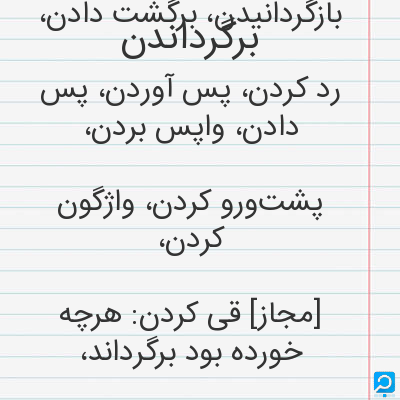 بازگردانیدن، برگشت دادن،
برگرداندن
رد کردن، پس آوردن، پس
دادن، واپس بردن،
پشت‌ورو کردن، واژگون
کردن،
[مجاز] قی کردن: هرچه
خورده بود برگرداند،